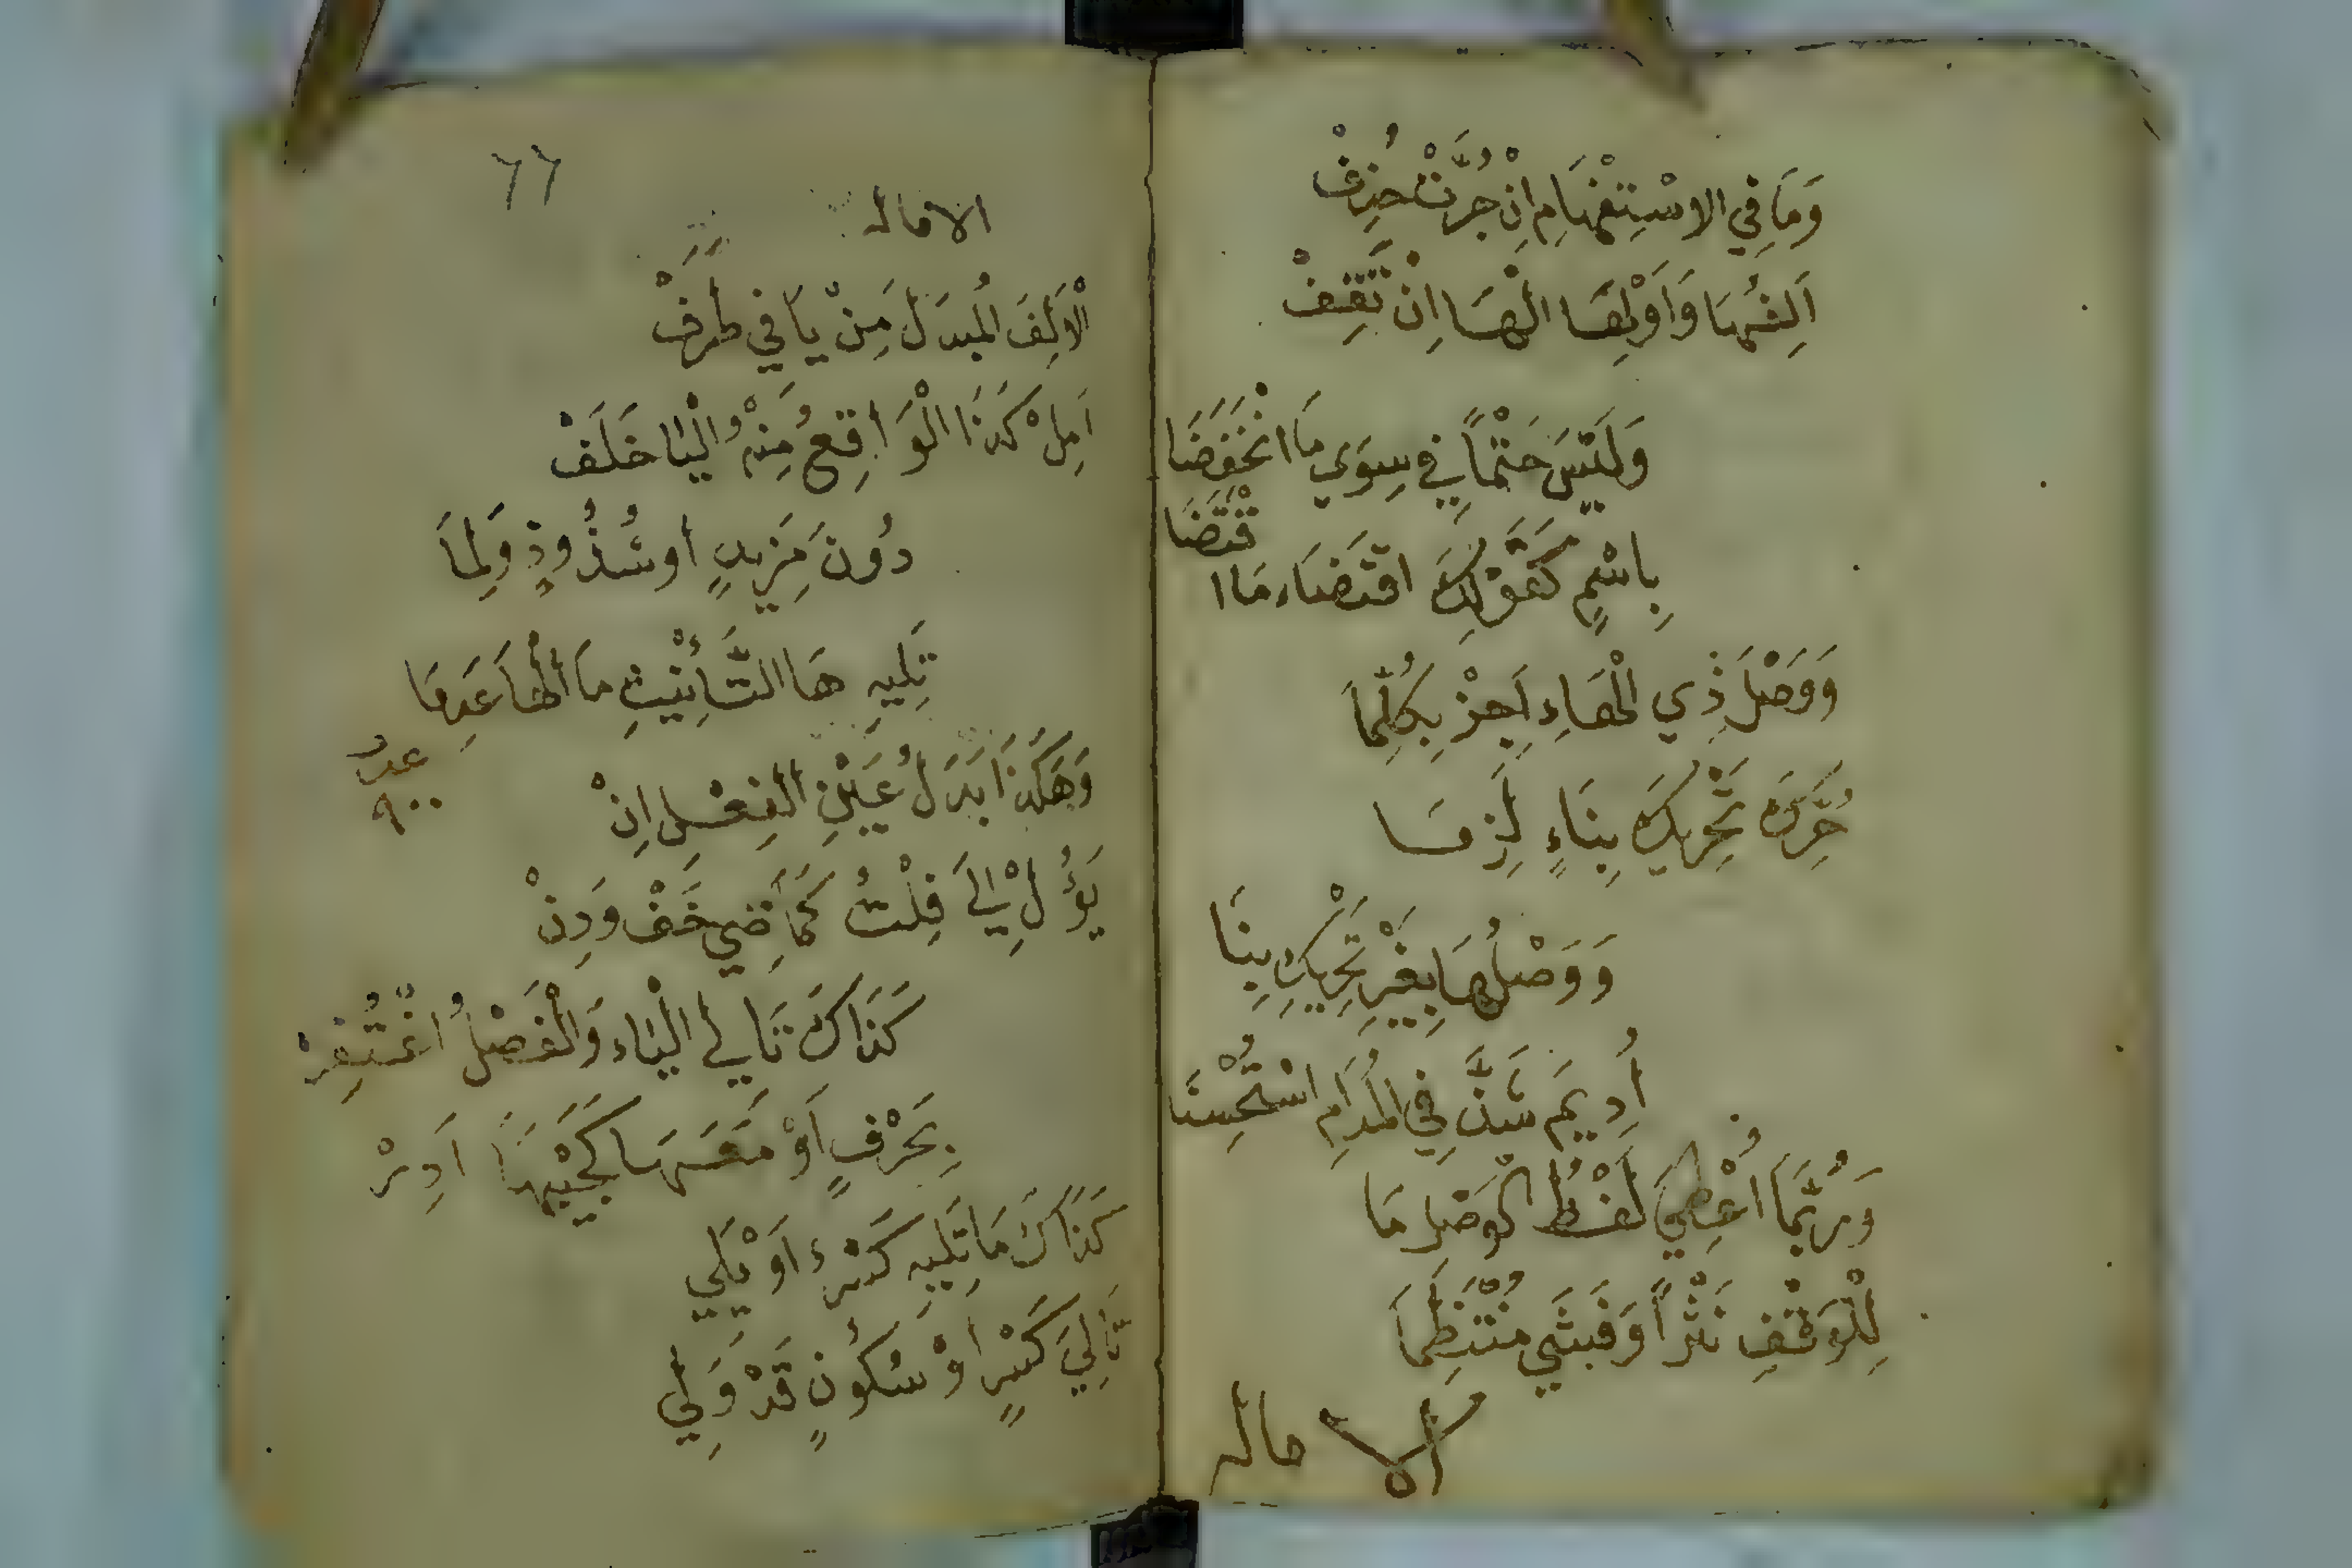 وَمَا فِي الاسْتِفْهَامِ اِنْ جُرَّتْ حُذِفْ
اَلِفُهَا وَاَوْلِهَا الْهَا اِنْ تَقِفْ
وَلَيْسَ حَتْمًا فِي سِوَي مَا انْخَفَضَا
بِاسْمٍ كَقَوْلِكَ اقْتَضَاءَ مَا ا
قْتَضَا
وَوَصْلَ ذِي الْهَاءِ اَجِزْ بِكُلِّمَا
حُرِّكَ تَحْرِيكَ بِنَاءٍ لَزِمَا
وَوَصْلُهَا بِغَيْرِ تَحْرِيكِ بِنَا
اُدِيمَ شَذَّ فِي الْمُدَامِ اسْتُحْسِنَا
وَرُبَّمَا اُعْطِيَ لَفْظُ الْوَصْلِ مَا
لِلْوَقْفِ نَثْرًا وَفَشَي مُنْتَظِمَا
الاماله
٦٦
الاماله
الْاَلِفَ الْمُبْدَلَ مِنْ يَا فِي طَرَفْ
اَمِلْ كَذَا الْوَاقِعُ مِنْهُ الْيَا خَلَفْ
دُونَ مَزِيدٍ اوشُذُوذٍ وَلِمَا
تَلِيهِ هَا التَّأْنِيْثِ مَا الْهَا عَدِمَا
وَهَكَذَا بَدَلُ عَيْنِ الْفِعْلِ اِنْ
عدد
٩٠٠
يَؤُلْ اِلَيَ فِلْتُ كَمَاضِي خَفْ وَدِنْ
كَذَاكَ تَالِي الْيَاء وَالْفَصْلُ اغْتُفِرْ
بِحَرْفٍ اَوْ مَعَ هَا كَجَيْبَهَا اَدِرْ
كَذَاكَ مَا يَلِيهِ كَسْرٌ اَوْ يَلِي
تَالِيَ كَسْرٍ اوْ سُكُونٍ قَدْ وَلِي